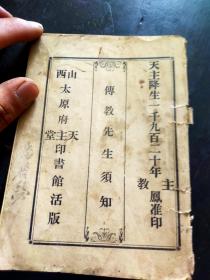 天主降生一千九百二十年主教鳳准印
傳教先生須知
山西太原府天主堂印書館活版